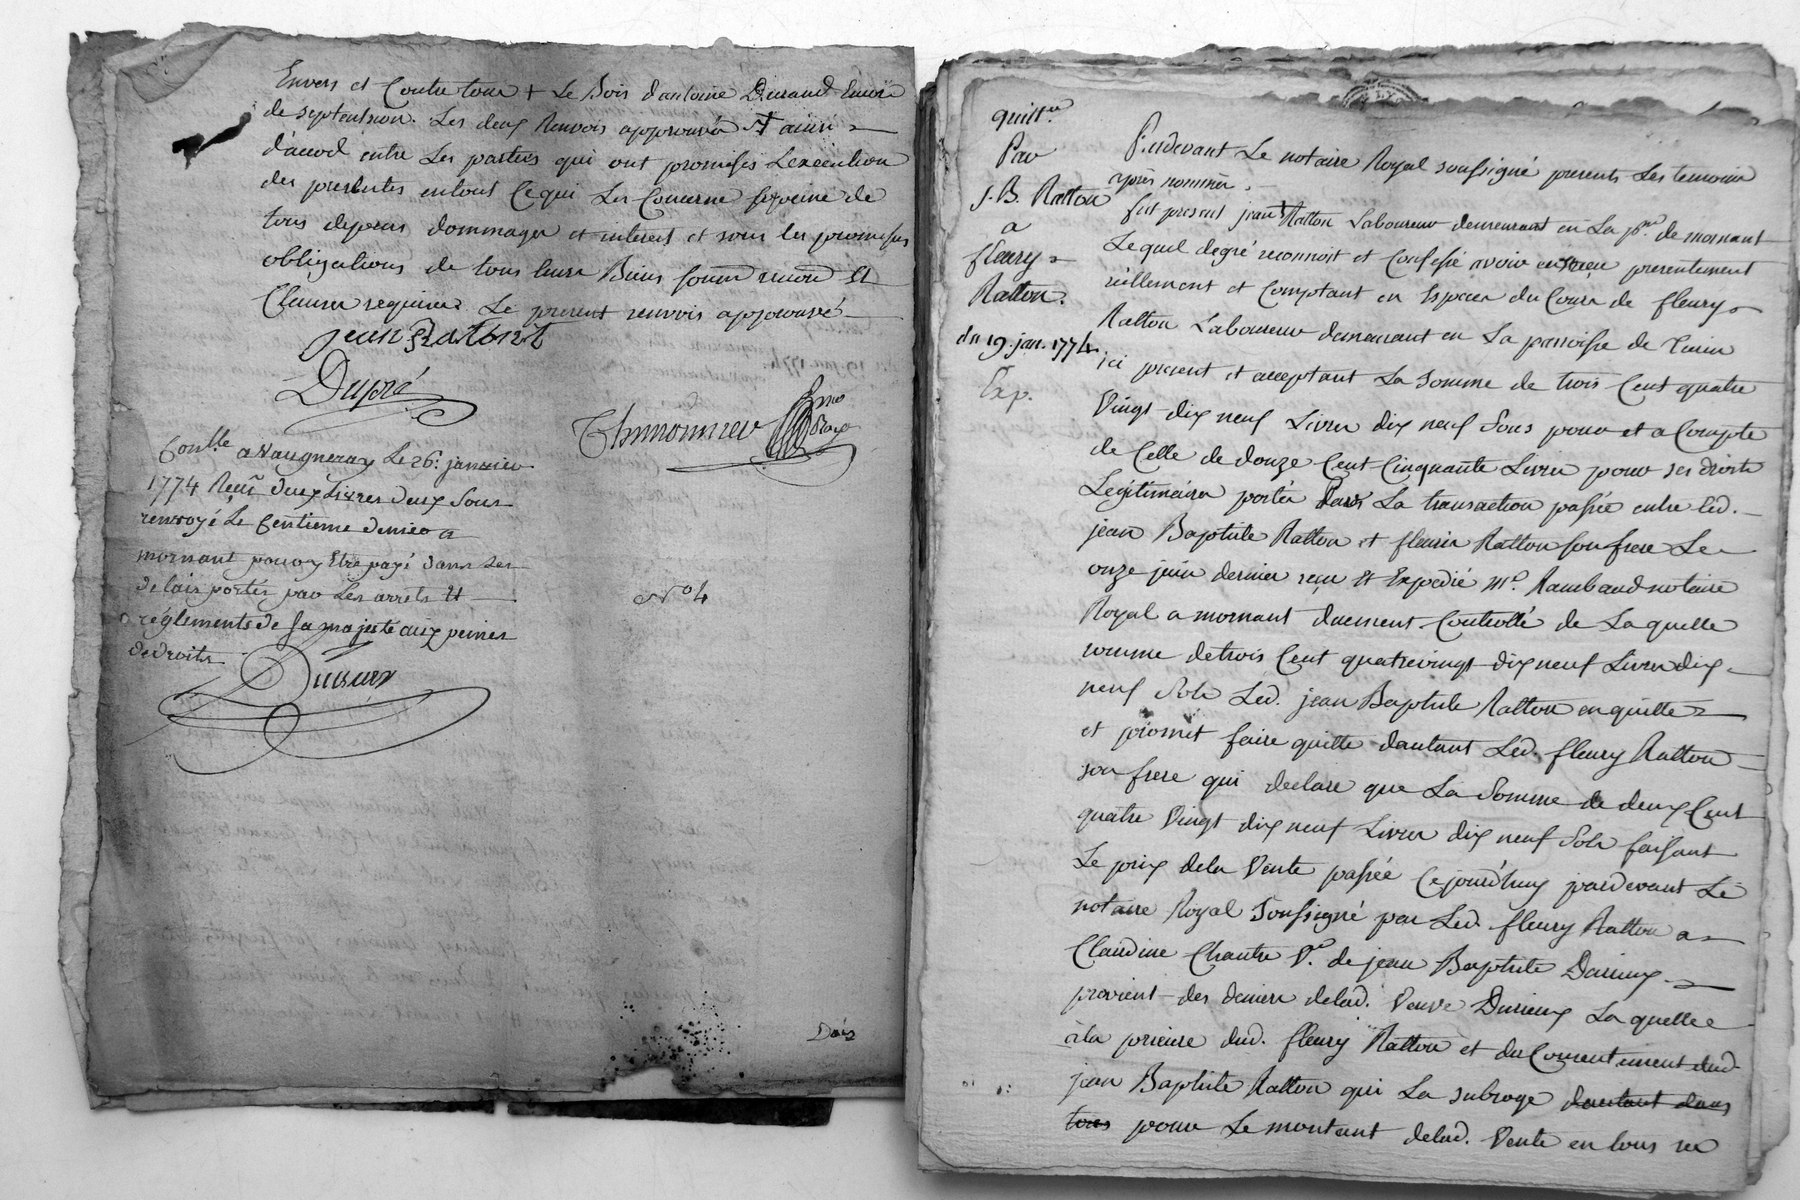 Envers et Contre tous + Le Bois d'antoine Durand Encore
de septentrion. Les deux Renvois approuvés ainsi
d'accord entre Les parties qui ont promises L'execution
des presentes en tout Ce qui Les Concerne a peine de
tous depens dommages et interest et sous les promesses
obligations de tous leurs Biens
Clauses requises. Le present renvois approuvé
jean Ratont
Dupré
Thimonnier
Conllé a Vaugneray Le 26e janvier
1774 Reçu deux Livres deux Sous
renvoyé Le Centieme denier a
mornant pour y Etre payé dans Les
delais portés par Les arrets Et
réglements de Sa majesté aux peines
de droits
No 4
Dois
quittce
Par
J. B. Ratton
a
fleury
Ratton.
du 19. jan. 1774
Exp.
Pardevant Le notaire Royal soussigné presents Les temoins
après nommés.
fut present jean Bte Ratton Laboureur demeurant en La psse de mornant
Lequel degré reconnoit et Confesse avoir reçu presentement
réellement et Comptant en Especes du Cours de fleury
Ratton Laboureur demeurant en La parroisse de
ici present et acceptant La Somme de trois Cent quatre
Vingt dix neuf Livres dix neuf Sous pour et a Compte
de Celle de douze Cent Cinquante Livres pour ses droits
Légitimaires portés Dans La transaction passée entre Led.
jean Baptiste Ratton et fleury Ratton son frere Le
onze juin dernier reçu Et Expedié Me Rambaud notaire
Royal a mornant duement Controllé de Laquelle
somme de trois Cent quatrevingt dix neuf Livres dix
neuf Sols Led. jean Baptiste Ratton en quitte
et promet faire quitte dautant Led. fleury Ratton
son frere qui declare que La Somme de deux Cent
quatre Vingt dix neuf Livres dix neuf Sols faisant
Le prix de la Vente passée Cejourd'huy pardevant Le
notaire Royal Soussigné par Led. fleury Ratton a
Claudine Chantre Ve de jean Baptiste Durieux
provient des deniers delad. Veuve Durieux Laquelle
à la priere dud. fleury Ratton et du Consentement dud.
jean Baptiste Ratton qui La subroge dautant dans
tous pour Le montant delad. Vente en tous ses